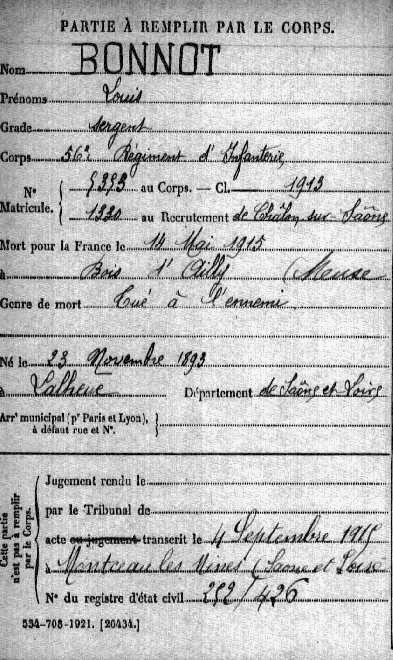 PARTIE À REMPLIR PAR LE CORPS.
Nom BONNOT
Prénoms Louis
Grade sergent
Corps 56e Régiment d'Infanterie
N° Matricule. { 5353 au Corps. — Cl. 1913
1320 au Recrutement de Châlon sur Saône
Mort pour la France le 14 Mai 1915
à Bois d'Ailly (Meuse
Genre de mort Tué à l'ennemi
Né le 23 Novembre 1893
à Lalheue Département de Saône et Loire
Arrt municipal (pr Paris et Lyon), à défaut rue et N°. }
Cette partie n'est pas à remplir par le Corps.
Jugement rendu le
par le Tribunal de
acte ou jugement transcrit le 4 Septembre 1915
à Montceau les Mines (Saone et Loire
N° du registre d'état civil 252/426
534-708-1921. [26434.]